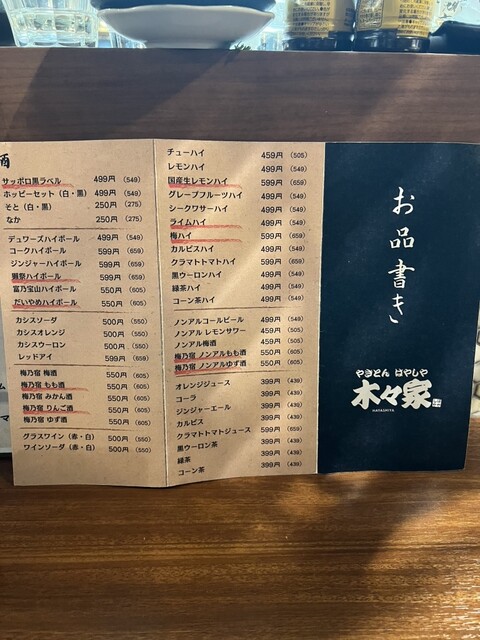 酒
サッポロ黒ラベル 499円 (549)
ホッピーセット(白・黒) 499円 (549)
そと(白・黒) 250円 (275)
なか 250円 (275)
デュワーズハイボール 499円 (549)
コークハイボール 599円 (659)
ジンジャーハイボール 599円 (659)
獺祭ハイボール 599円 (659)
富乃宝山ハイボール 550円 (605)
だいやめハイボール 550円 (605)
カシスソーダ 500円 (550)
カシスオレンジ 500円 (550)
カシスウーロン 500円 (550)
レッドアイ 599円 (659)
梅乃宿 梅酒 550円 (605)
梅乃宿 もも酒 550円 (605)
梅乃宿 みかん酒 550円 (605)
梅乃宿 りんご酒 550円 (605)
梅乃宿 ゆず酒 550円 (605)
グラスワイン(赤・白) 500円 (550)
ワインソーダ(赤・白) 500円 (550)
チューハイ 459円 (505)
レモンハイ 499円 (549)
国産生レモンハイ 599円 (659)
グレープフルーツハイ 499円 (549)
シークワサーハイ 499円 (549)
ライムハイ 499円 (549)
梅ハイ 599円 (659)
カルピスハイ 499円 (549)
クラマトトマトハイ 599円 (659)
黒ウーロンハイ 499円 (549)
緑茶ハイ 499円 (549)
コーン茶ハイ 499円 (549)
ノンアルコールビール 499円 (549)
ノンアル レモンサワー 459円 (505)
ノンアル梅酒 459円 (505)
梅乃宿 ノンアルもも酒 550円 (605)
梅乃宿 ノンアルゆず酒 550円 (605)
オレンジジュース 399円 (439)
コーラ 399円 (439)
ジンジャーエール 399円 (439)
カルピス 399円 (439)
クラマトトマトジュース 599円 (659)
黒ウーロン茶 399円 (439)
緑茶 399円 (439)
コーン茶 399円 (439)
お品書き
やきとん はやしや
木々家
HAYASHIYA